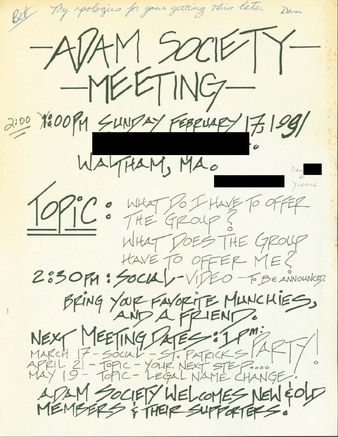 Bet My apologies for your getting this late. Dan
—ADAM SOCIETY—
—MEETING—
2:00 1:00PM SUNDAY FEBRUARY 17, 1991
WALTHAM, MA.
or
Yvonne
TOPIC: WHAT DO I HAVE TO OFFER
THE GROUP?
WHAT DOES THE GROUP
HAVE TO OFFER ME?
2:30PM: SOCIAL - VIDEO - TO BE ANNOUNCED
BRING YOUR FAVORITE MUNCHIES,
AND A FRIEND.
NEXT MEETING DATES: 1PM:
MARCH 17 - SOCIAL - ST. PATRICKS PARTY!
APRIL 21 - TOPIC - YOUR NEXT STEP....
MAY 19 - TOPIC - LEGAL NAME CHANGE.
ADAM SOCIETY WELCOMES NEW & OLD
MEMBERS & THEIR SUPPORTERS.